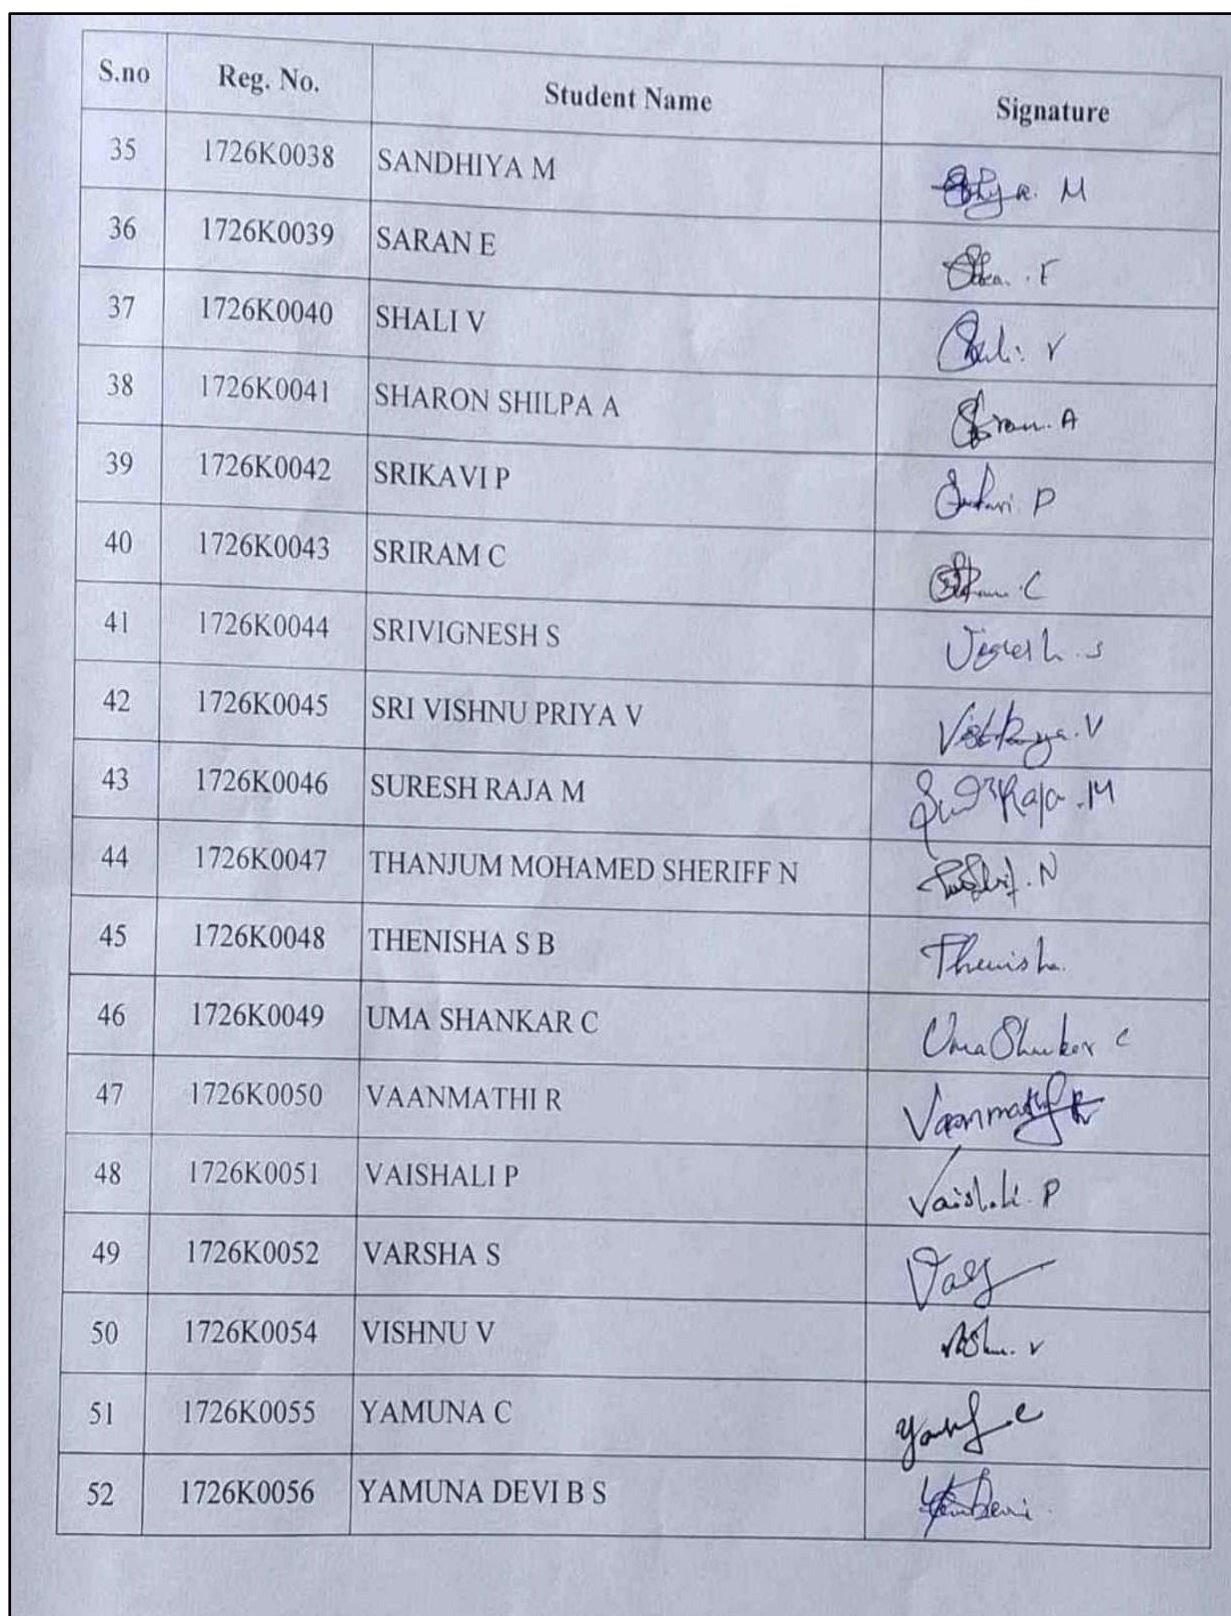 S.no Reg. No. Student Name Signature
35 1726K0038 SANDHIYA M M
36 1726K0039 SARAN E
37 1726K0040 SHALI V V
38 1726K0041 SHARON SHILPA A A
39 1726K0042 SRIKAVI P P
40 1726K0043 SRIRAM C C
41 1726K0044 SRIVIGNESH S
42 1726K0045 SRI VISHNU PRIYA V V
43 1726K0046 SURESH RAJA M Raja .M
44 1726K0047 THANJUM MOHAMED SHERIFF N N
45 1726K0048 THENISHA S B Thenisha.
46 1726K0049 UMA SHANKAR C C
47 1726K0050 VAANMATHI R
48 1726K0051 VAISHALI P Vaishali. P
49 1726K0052 VARSHA S
50 1726K0054 VISHNU V V
51 1726K0055 YAMUNA C
52 1726K0056 YAMUNA DEVI B S